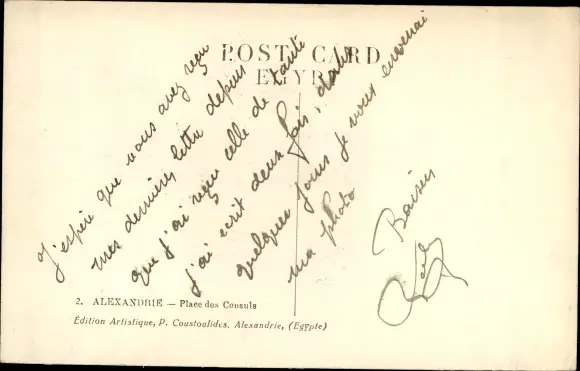 POST CARD
EGYPT
J'espère que vous avez reçu
mes dernières lettre depuis
que j'ai reçu celle de tante
j'ai ecrit deux fois, dans
quelques jours je vous enverrai
ma photo
Baisers
2. ALEXANDRIE — Place des Consuls
Édition Artistique, P. Coustoulides. Alexandrie, (Egypte)